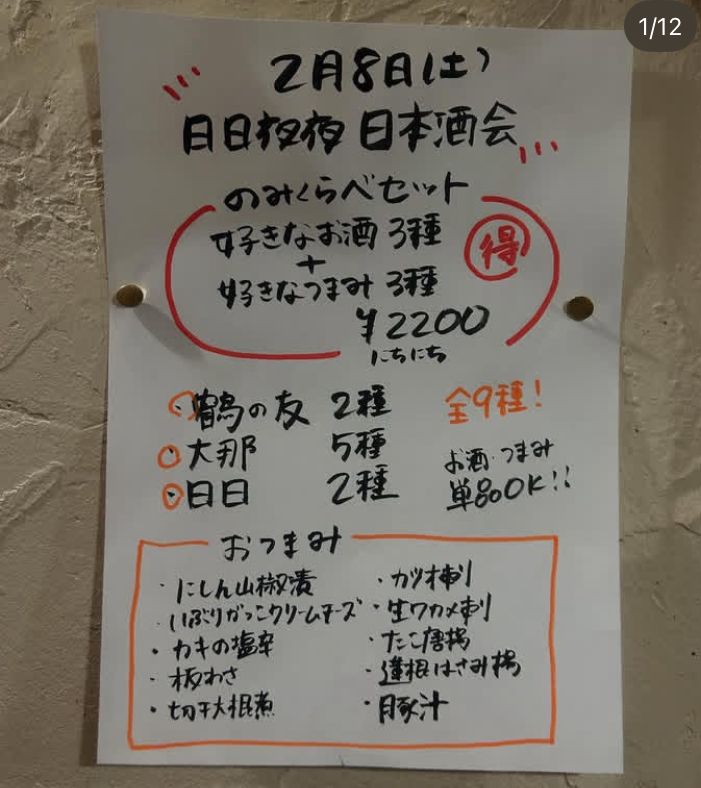 1/12
2月8日(土)
日日夜夜 日本酒会
のみくらべセット
好きなお酒 3種
+
好きなつまみ 3種
得
¥2200
にちにち
・鶴の友 2種
全9種!
・大那 5種
お酒・つまみ
・日日 2種
単品OK!!
おつまみ
・にしん山椒漬
・カツオ刺
・いぶりがっこクリームチーズ
・生ワカメ刺
・カキの塩辛
・たこ唐揚
・板わさ
・蓮根はさみ揚
・切干大根煮
・豚汁